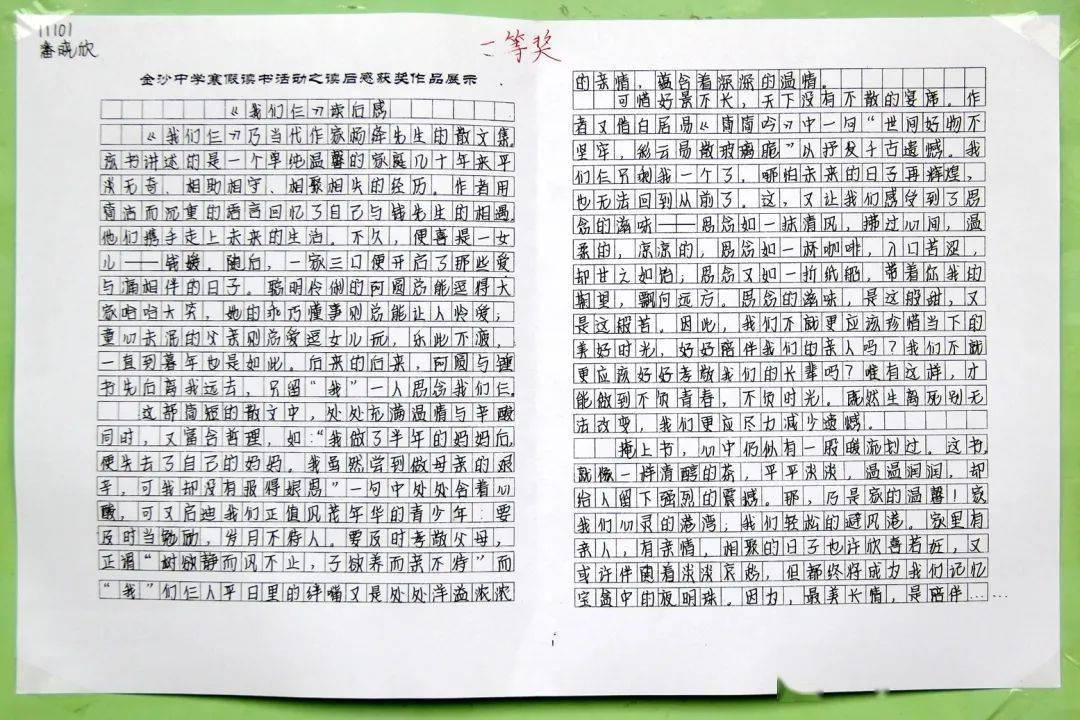 11101
潘晓欣
二等奖
金沙中学寒假读书活动之读后感获奖作品展示
《我们仨》读后感
《我们仨》乃当代作家杨绛先生的散文集。
该书讲述的是一个单纯温馨的家庭几十年来平
淡无奇、相助相守、相聚相失的经历。作者用
简洁而沉重的语言回忆了自己与钱先生的相遇。
他们携手走上未来的生活。不久，便喜提一女
儿——钱媛。随后，一家三口便开启了那些爱
与滴相伴的日子。聪明伶俐的阿圆总能逗得大
家哈哈大笑，她的乖巧懂事则总能让人怜爱；
童心未泯的父亲则总爱逗女儿玩，乐此不疲，
一直到暮年也是如此。后来的后来，阿圆与锺
书先后离我远去，只留“我”一人思念我们仨。
这部简短的散文中，处处充满温情与辛酸
同时，又富含哲理，如：“我做了半年的妈妈后，
便失去了自己的妈妈。我虽然尝到做母亲的艰
辛，可我却没有报得娘恩”一句中处处含着心
酸，可又启迪我们正值风茂年华的青少年：要
及时当勉励，岁月不待人。要及时孝敬父母，
正谓“树欲静而风不止，子欲养而亲不待”而
“我”们仨人平日里的绊嘴又是处处洋溢浓浓
的亲情，蕴含着深深的温情。
可惜好景不长，天下没有不散的宴席。作
者又借白居易《简简吟》中一句“世间好物不
坚牢，彩云易散玻璃脆”以抒发千古遗憾。我
们仨只剩我一个了，哪怕未来的日子再辉煌，
也无法回到从前了。这，又让我们感受到了思
念的滋味——思念如一抹清风，拂过心间，温
柔的，凉凉的，思念如一杯咖啡，入口苦涩，
却甘之如饴；思念又如一折纸船，带着你我的
期望，飘向远方。思念的滋味，是这般甜，又
是这般苦。因此，我们不就更应该珍惜当下的
美好时光，好好陪伴我们的亲人吗？我们不就
更应该好好孝敬我们的长辈吗？唯有这样，才
能做到不负青春，不负时光。既然生离死别无
法改变，我们更应尽力减少遗憾。
掩上书，心中仍似有一股暖流划过。这书
就像一样清醇的茶，平平淡淡，温温润润，却
给人留下强烈的震撼。那，乃是家的温馨！家
我们心灵的港湾；我们轻松的避风港。家里有
亲人，有亲情。相聚的日子也许欣喜若狂，又
或许伴随着淡淡哀愁，但都终将成为我们记忆
宝盒中的夜明珠。因为，最美长情，是陪伴……
1